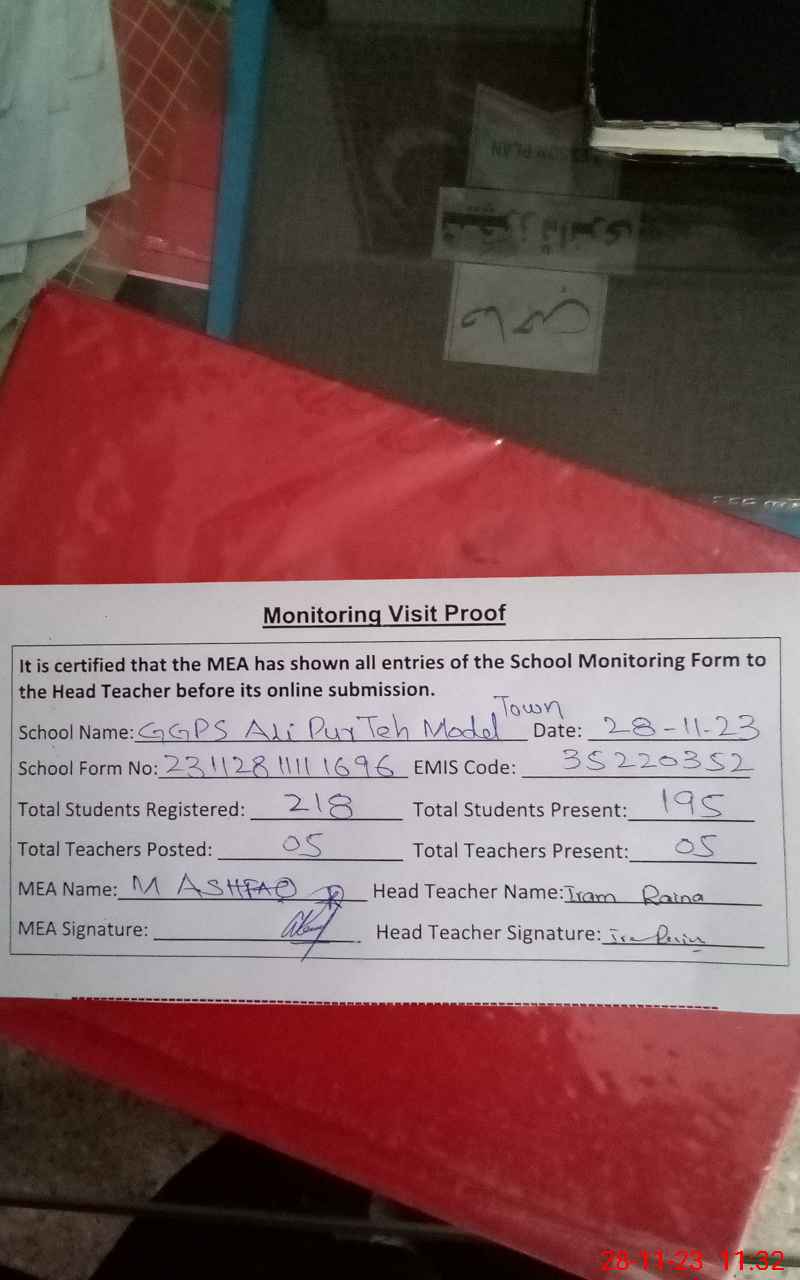 Monitoring Visit Proof
It is certified that the MEA has shown all entries of the School Monitoring Form to
the Head Teacher before its online submission.
School Name: GGPS Ali Pur Teh Model Town Date: 28-11-23
School Form No: 2311281111696 EMIS Code: 35220352
Total Students Registered: 218 Total Students Present: 195
Total Teachers Posted: 05 Total Teachers Present: 05
MEA Name: M ASHFAQ Head Teacher Name: Iram Raina
MEA Signature: Head Teacher Signature:
28-11-23 11:32